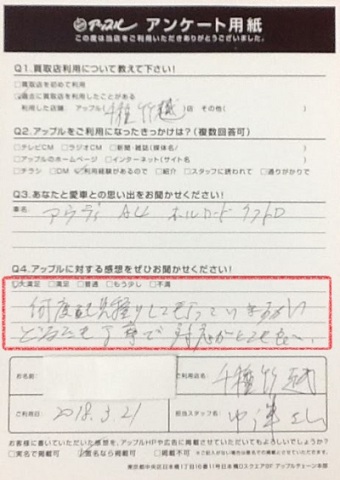 アップル アンケート用紙
この度は当店をご利用いただきありがとうございます。
Q1.買取店利用について教えて下さい!
□買取店を初めて利用
□過去に買取店を利用したことがある
利用した店舗、アップル(千種竹越)店 その他( )
Q2.アップルをご利用になったきっかけは?(複数回答可)
□テレビCM □ラジオCM □新聞・雑誌(媒体名/ )
□アップルのホームページ □インターネット(サイト名 )
□チラシ □DM □利用経験があるので □紹介 □スタッフに誘われて □通りがかりで
Q3.あなたと愛車との思い出をお聞かせください!
車名: アウディ A4
Q4.アップルに対する感想をぜひお聞かせください!
□大満足 □満足 □普通 □もう少し □不満
何度も見積りしてもらっていますが
とても丁寧で対応がとても
お名前
ご利用店名: 千種竹越
ご利用日: 2018.3.21
担当スタッフ名:
お客様に書いていただいた感想を、アップルHPや広告に掲載させていただいてもよろしいでしょうか?
□実名で掲載可 □匿名なら掲載可 □掲載不可
東京都中央区日本橋1丁目16番11号日本橋Dスクエア8F アップルチェーン本部